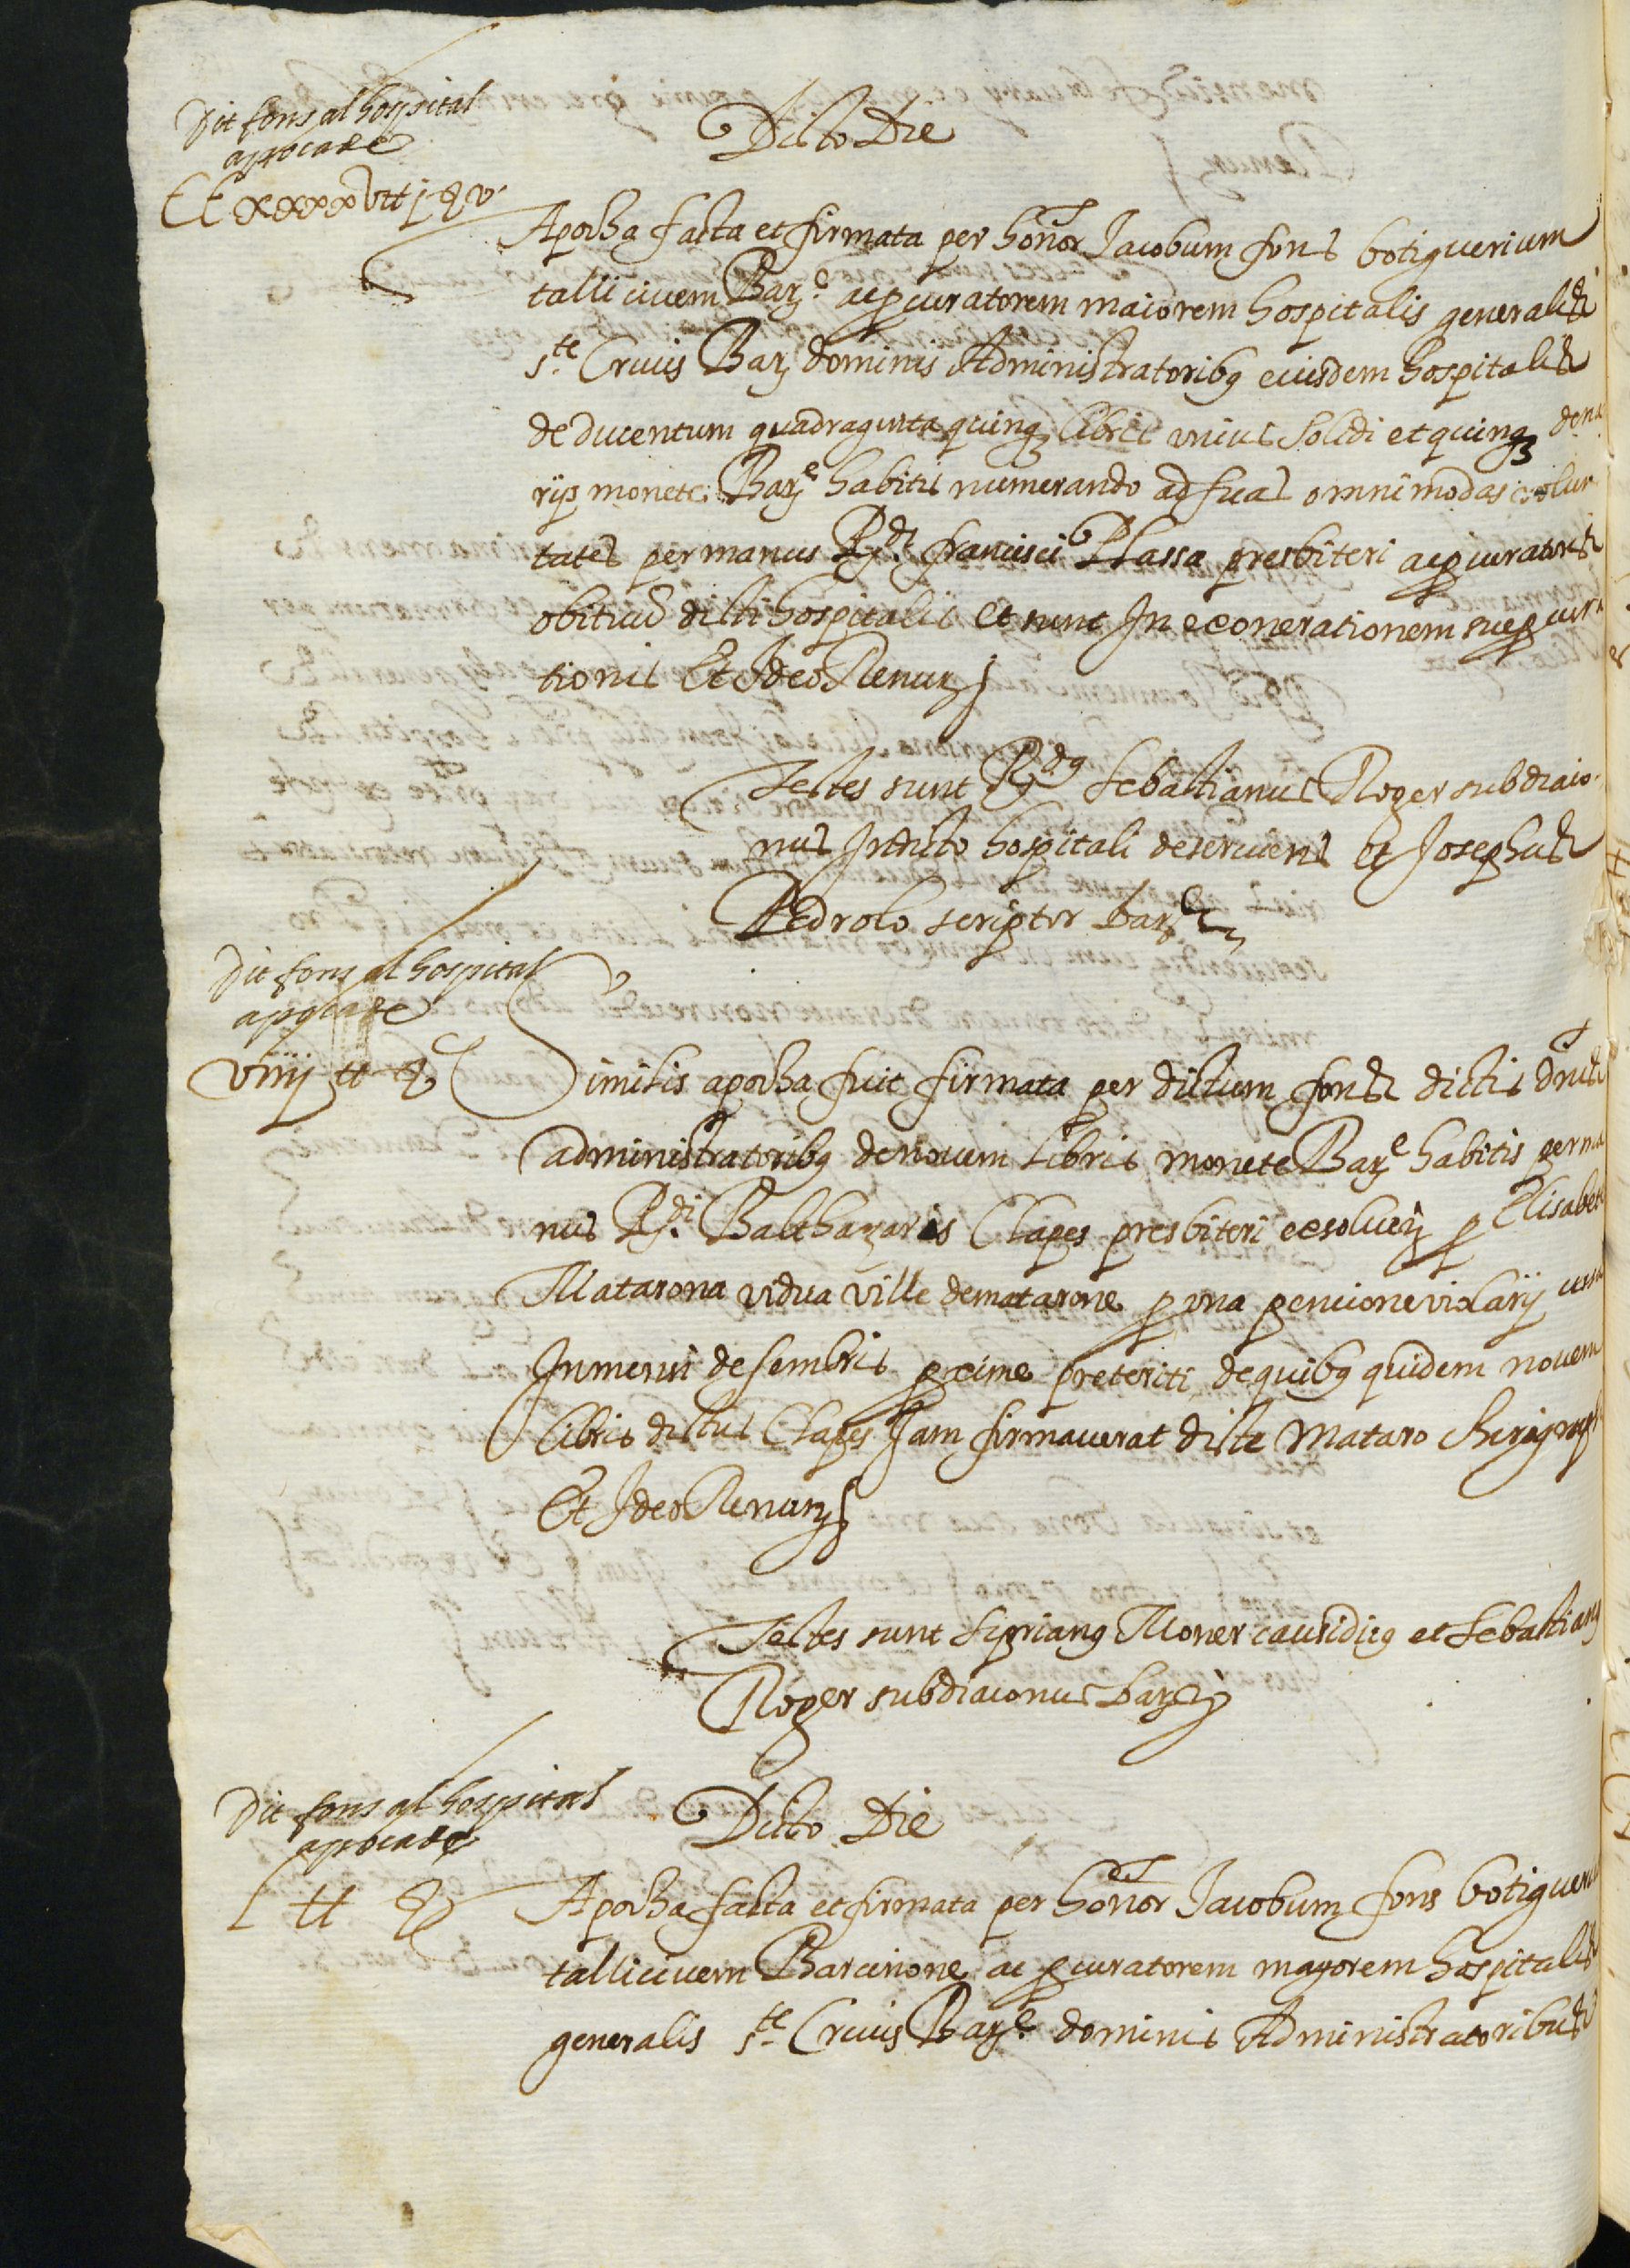 Dit fons al hospital
apocase
CCxxxxv tt j ß v
Dicto Die
Apocha facta et firmata per honor Jacobum fons botiguerium
talli civem Barẽ ac procuratorem maiorem hospitalis generalis
ste Crucis Bar dominis Administratoribus eiusdem hospitalis
de ducentum quadraginta quinq libris unius solidi et quinq dena
rijs monete Barẽ habitis numerando ad suas omnimodas volun
tates per manus Rdi francisci Plassa presbiteri ac procuratoris
obituũ dicti hospitalis et sunt In exonerationem sue procura
tionis Et Ideo Renun
Testes sunt Rdus Sebastianus Roger subdiaco
nus In dicto hospitali deserviens et Josephus
Pedrolo scriptor bar
Dit fons al hospital
apocase
viiij tt ß
Similis apocha fuit firmata per dictum fons dictis dnis
administratoribus de novem libris monete Barẽ habitis per ma
nus Rdi Balthazaris Clapes presbiteri exsolven pro Elisabet
Matarona vidua ville de matarone pro una pencione violarij
In mensi desembris proxime preteriti de quibus quidem novem
libris dictus Clapes Jam firmaverat dicte Mataro
Et Ideo Renun
Testes sunt Siprianus Moner causidicus et Sebastianus
Roger subdiaconus bar
Dit fons al hospital
apocase
L tt ß
Dicto Die
Apocha facta et firmata per honor Jacobum fons botigueriu
talli civem Barcinone ac procuratorem mayorem hospitalis
generalis ste Crucis Barẽ dominis Administratoribus